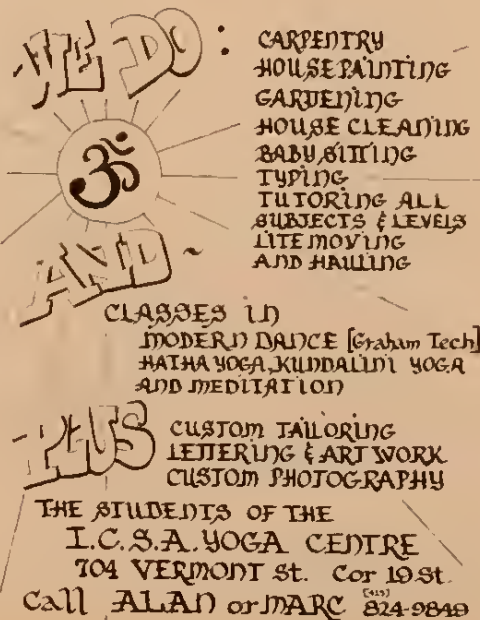 WE DO:
CARPENTRY
HOUSEPAINTING
GARDENING
HOUSE CLEANING
BABYSITTING
TYPING
TUTORING ALL
SUBJECTS & LEVELS
LITE MOVING
AND HAULING
ॐ
AND ~
CLASSES IN
MODERN DANCE [Graham Tech]
HATHA YOGA, KUNDALINI YOGA
AND MEDITATION
PLUS
CUSTOM TAILORING
LETTERING & ART WORK
CUSTOM PHOTOGRAPHY
THE STUDENTS OF THE
I.C.S.A. YOGA CENTRE
704 VERMONT St. Cor 19 St.
Call ALAN or MARC [415] 824-9849